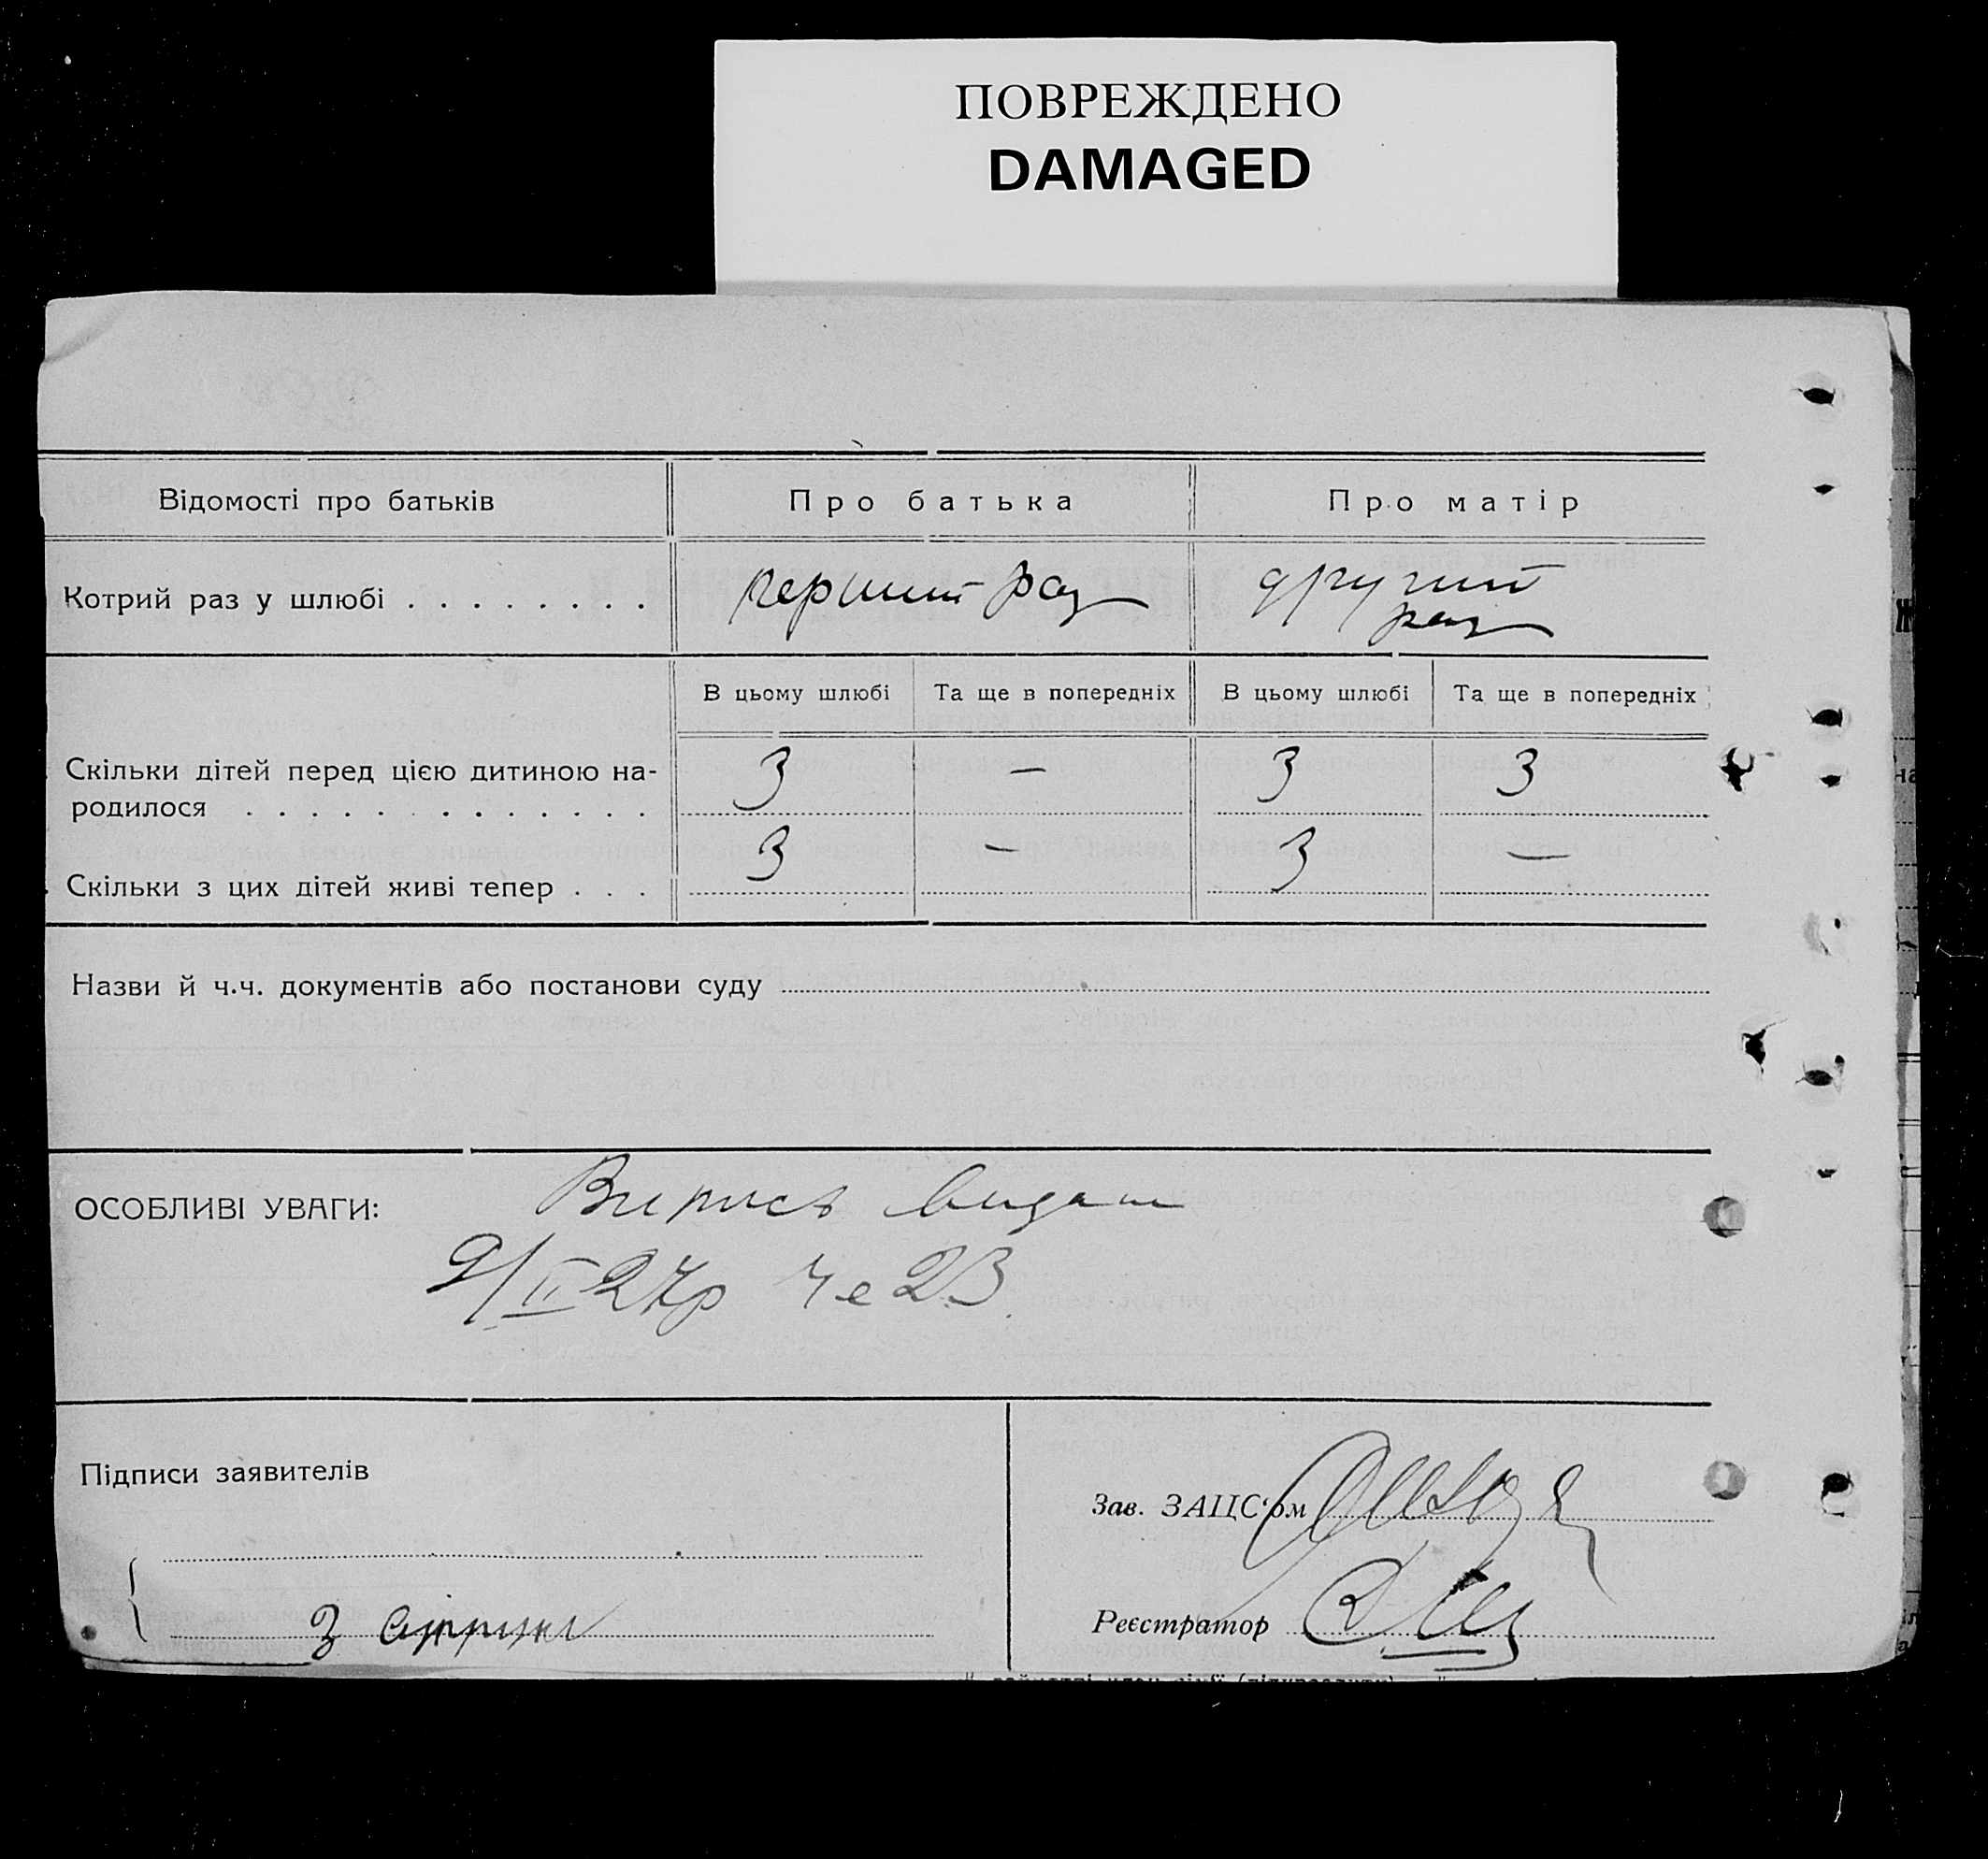 ПОВРЕЖДЕНО
DAMAGED
Відомості про батьків Про батька Про матір
Котрий раз у шлюбі . . . . . . . . перший раз другий
раз
В цьому шлюбі Та ще в попередніх В цьому шлюбі Та ще в попередніх
Скільки дітей перед цією дитиною на- 3 — 3 3
родилося . . . . . . . . . . . . .
Скільки з цих дітей живі тепер . . . 3 — 3 —
Назви й ч.ч. документів або постанови суду
ОСОБЛИВІ УВАГИ: Випись видан
9/II 27р Че 23.
Підписи заявителів
Зав. ЗАЦС'ом
З
Реєстратор